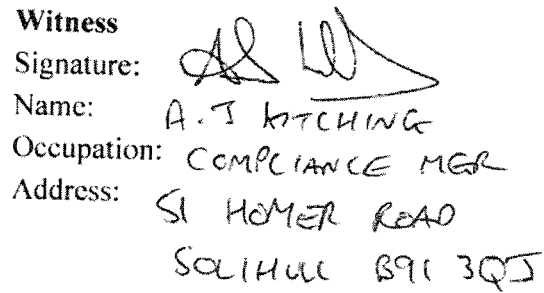 Witness
Signature:
Name: A. J KITCHING
Occupation: COMPLIANCE MGR
Address: 51 HOMER ROAD
SOLIHULL B91 3QJ